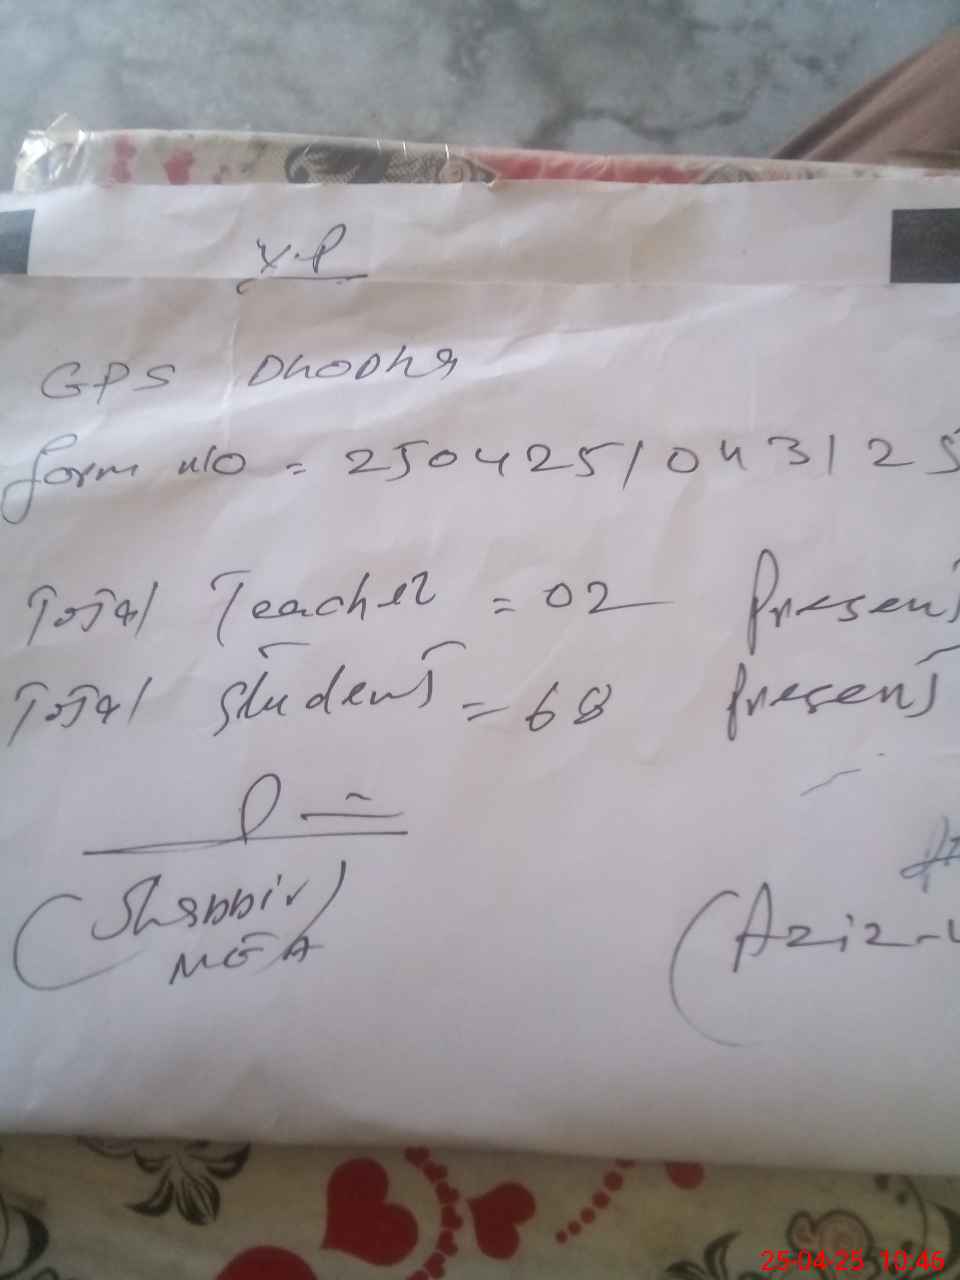 V.P
GPS Dhodha
form no = 250425104312 5
Total Teacher = 02 Present
Total Student = 68 Present
(Shabbir)
MEA
(Aziz-
25-04-25 10:46